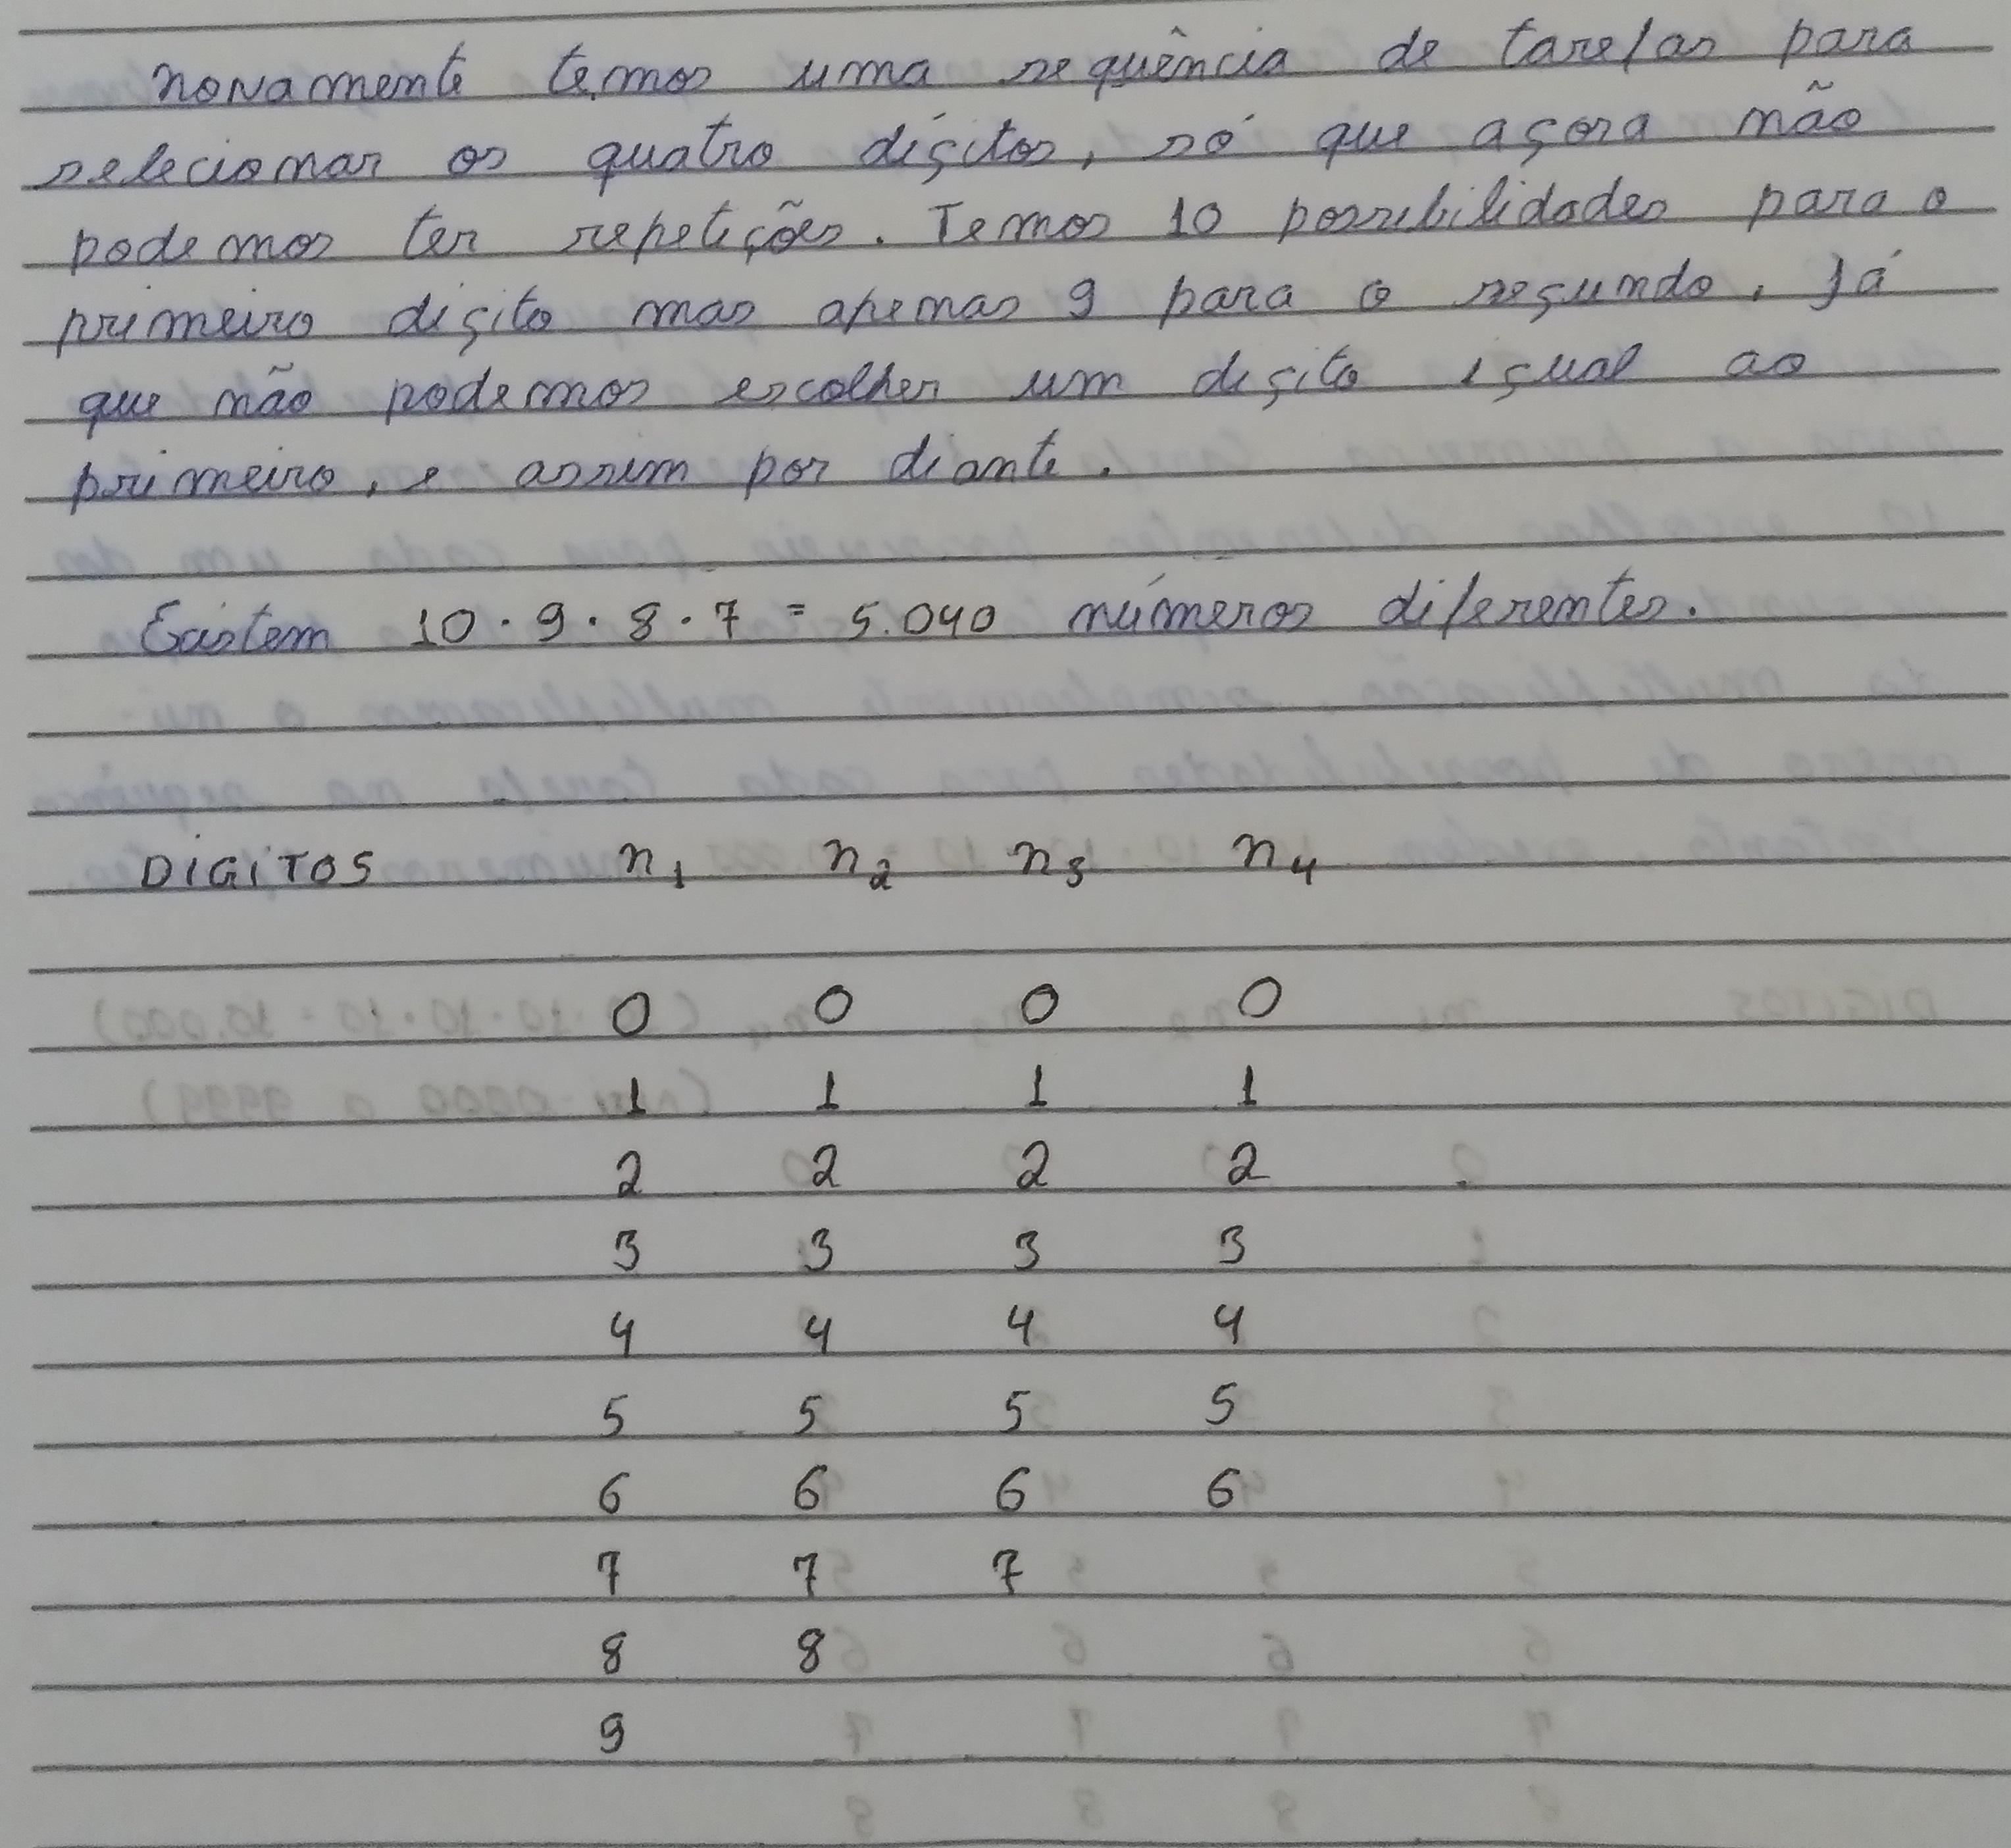 novamente temos uma sequência de tarefas para
selecionar os quatro dígitos, só que agora não
podemos ter repetições. Temos 10 possibilidades para o
primeiro digito mas apenas 9 para o segundo, já
que não podemos escolher um digito igual ao
primeiro, e assim por diante.
Existem 10 · 9 · 8 · 7 = 5.040 números diferentes.
DIGITOS n₁ n₂ n₃ n₄
0 0 0 0
1 1 1 1
2 2 2 2
3 3 3 3
4 4 4 4
5 5 5 5
6 6 6 6
7 7 7
8 8
9